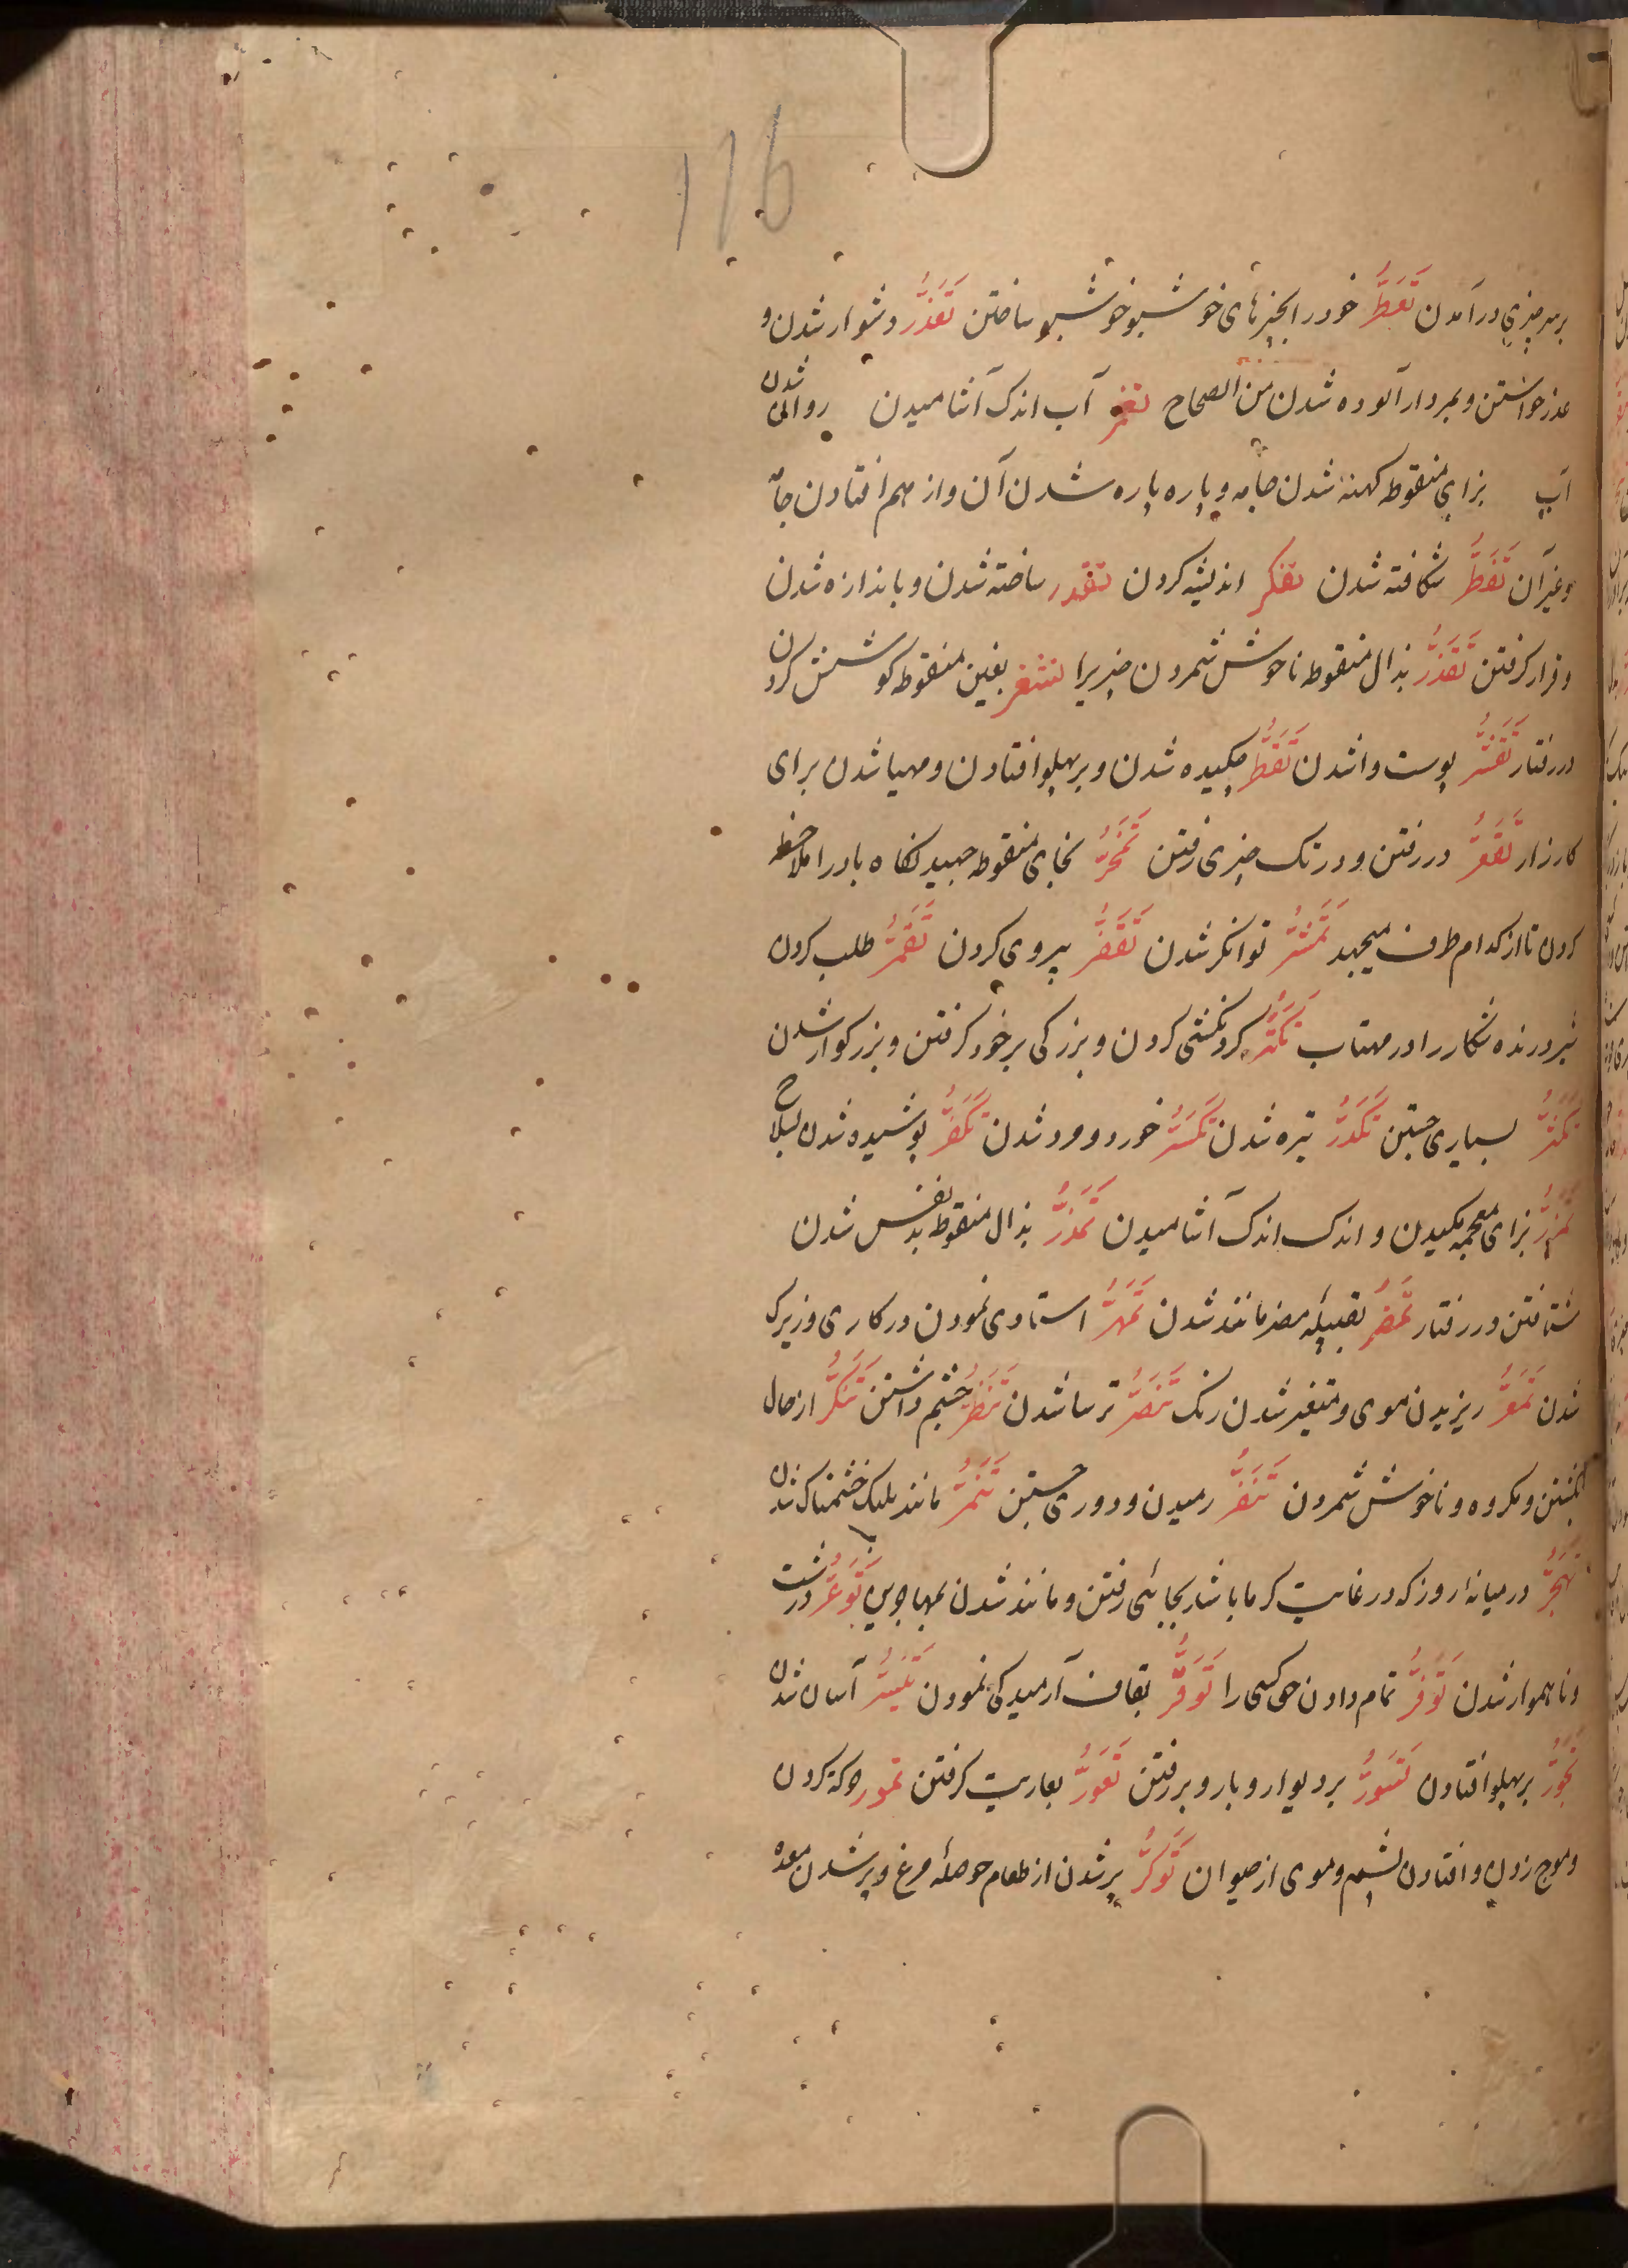 116
بر سر چیزی درآمدن تَعَطُّر خود را بچیزهای خوشبو خوشبو ساختن تَعَذُّر دشوار شدن و
عذر خواستن و بمردار آلوده شدن من الصحاح تغمر آب اندک آشامیدن روانی شدن
آب بزای منقوطه کهنه شدن جامه و پاره پاره شدن آن و از هم افتادن جامه
و غیر آن تَفَطُّر شکافته شدن تفکر اندیشه کردن تقدر ساخته شدن و باندازه شدن
و قرار گرفتن تَقَذُّر بذال منقوطه ناخوش شمردن چیزیرا تشغر بغین منقوطه کوشش کردن
در رفتار تَقَشُّر پوست وا شدن تَقَطُّر چکیده شدن و بر پهلو افتادن و مهیا شدن برای
کارزار تَقَعُّر در رفتن و در تک چیزی رفتن تَمَخُّر بخای منقوطه جهیدنگاه باد را ملاحظه
کردن تا از کدام طرف میجهد تَمَشُّر توانکر شدن تَقَفُّر پیروی کردن تَقَمُّر طلب کردن
شیر درنده شکار را در مهتاب تَکَبُّر گردنکشی کردن و بزرکی بر خود کرفتن و بزرکوار شدن
تَکَثُّر بسیاری جستن تَکَدُّر تیره شدن تَکَسُّر خورد و مرد شدن تَکَفُّر پوشیده شدن بسلاح
تَمَزُّر بزای معجمه مکیدن و اندک اندک آشامیدن تَمَذُّر بذال منقوطه بد نفس شدن
شتافتن در رفتار تَمَضُّر بقبیله مضر مانند شدن تَمَهُّر استادی نمودن در کاری و زیرک
شدن تَمَعُّر ریزیدن موی و متغیر شدن رنک تَنَصُّر ترسا شدن تَنَظُّر چشم داشتن تَنَکُّر از حال
کشتن و مکروه و ناخوش شمردن تَنَفُّر رمیدن و دوری جستن تَنَمُّر مانند پلنک خشمناک شدن
تَهَجُّر در میانهٔ روز که در غایت کرما باشد بجائی رفتن و مانند شدن بمهاجرین تَوَعُّر درشت
و ناهموار شدن تَوَفُّر تمام دادن حق کسی را تَوَقُّر بقاف آرمیدکی نمودن تَیَسُّر آسان شدن
تَجَوُّر بر پهلو افتادن تَسَوُّر بر دیوار و بارو بر رفتن تَعَوُّر بعاریت کرفتن تمور حرکت کردن
و موج زدن و افتادن پشم و موی از حیوان تَوَکُّر پر شدن از طعام حوصلهٔ مرغ و پر شدن معده